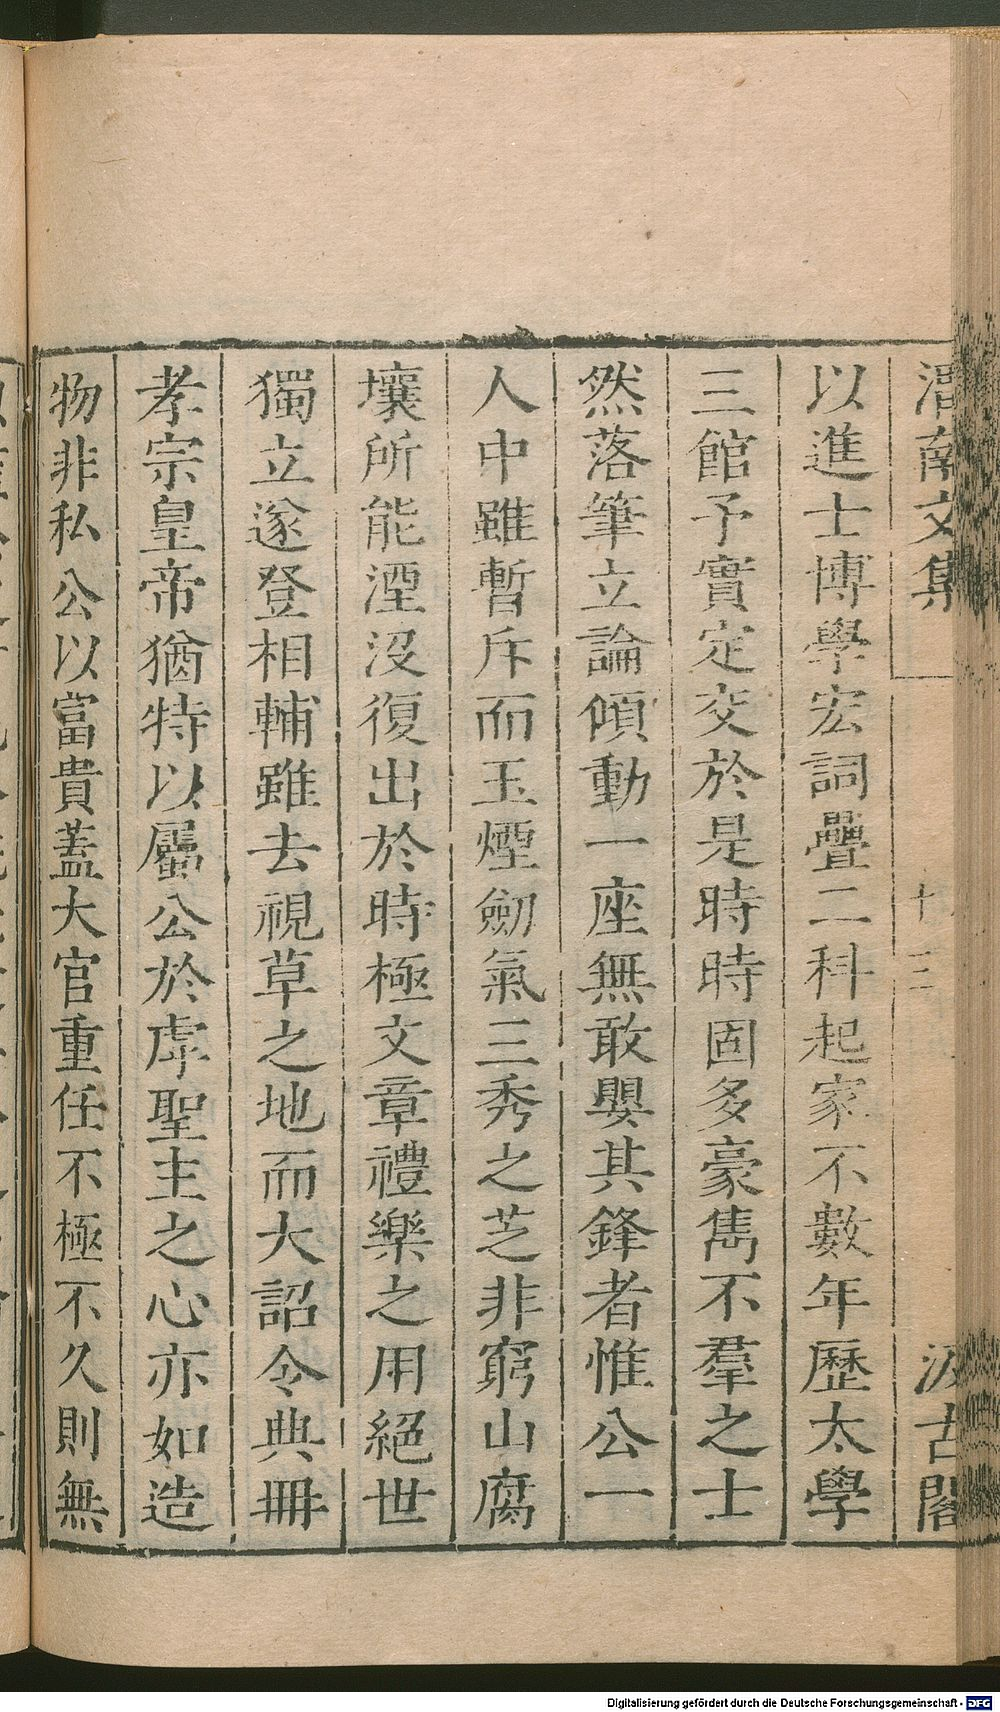 渭南文集 十三 汲古閣
以進士博學宏詞疊二科起家不數年歷太學
三館予實定交於是時時固多豪雋不羣之士
然落筆立論傾動一座無敢嬰其鋒者惟公一
人中雖暫斥而玉煙劒氣三秀之芝非窮山腐
壤所能湮沒復出於時極文章禮樂之用絕世
獨立遂登相輔雖去視草之地而大詔令典冊
孝宗皇帝猶特以屬公於虖聖主之心亦如造
物非私公以富貴蓋大官重任不極不久則無
Digitalisierung gefördert durch die Deutsche Forschungsgemeinschaft - DFG